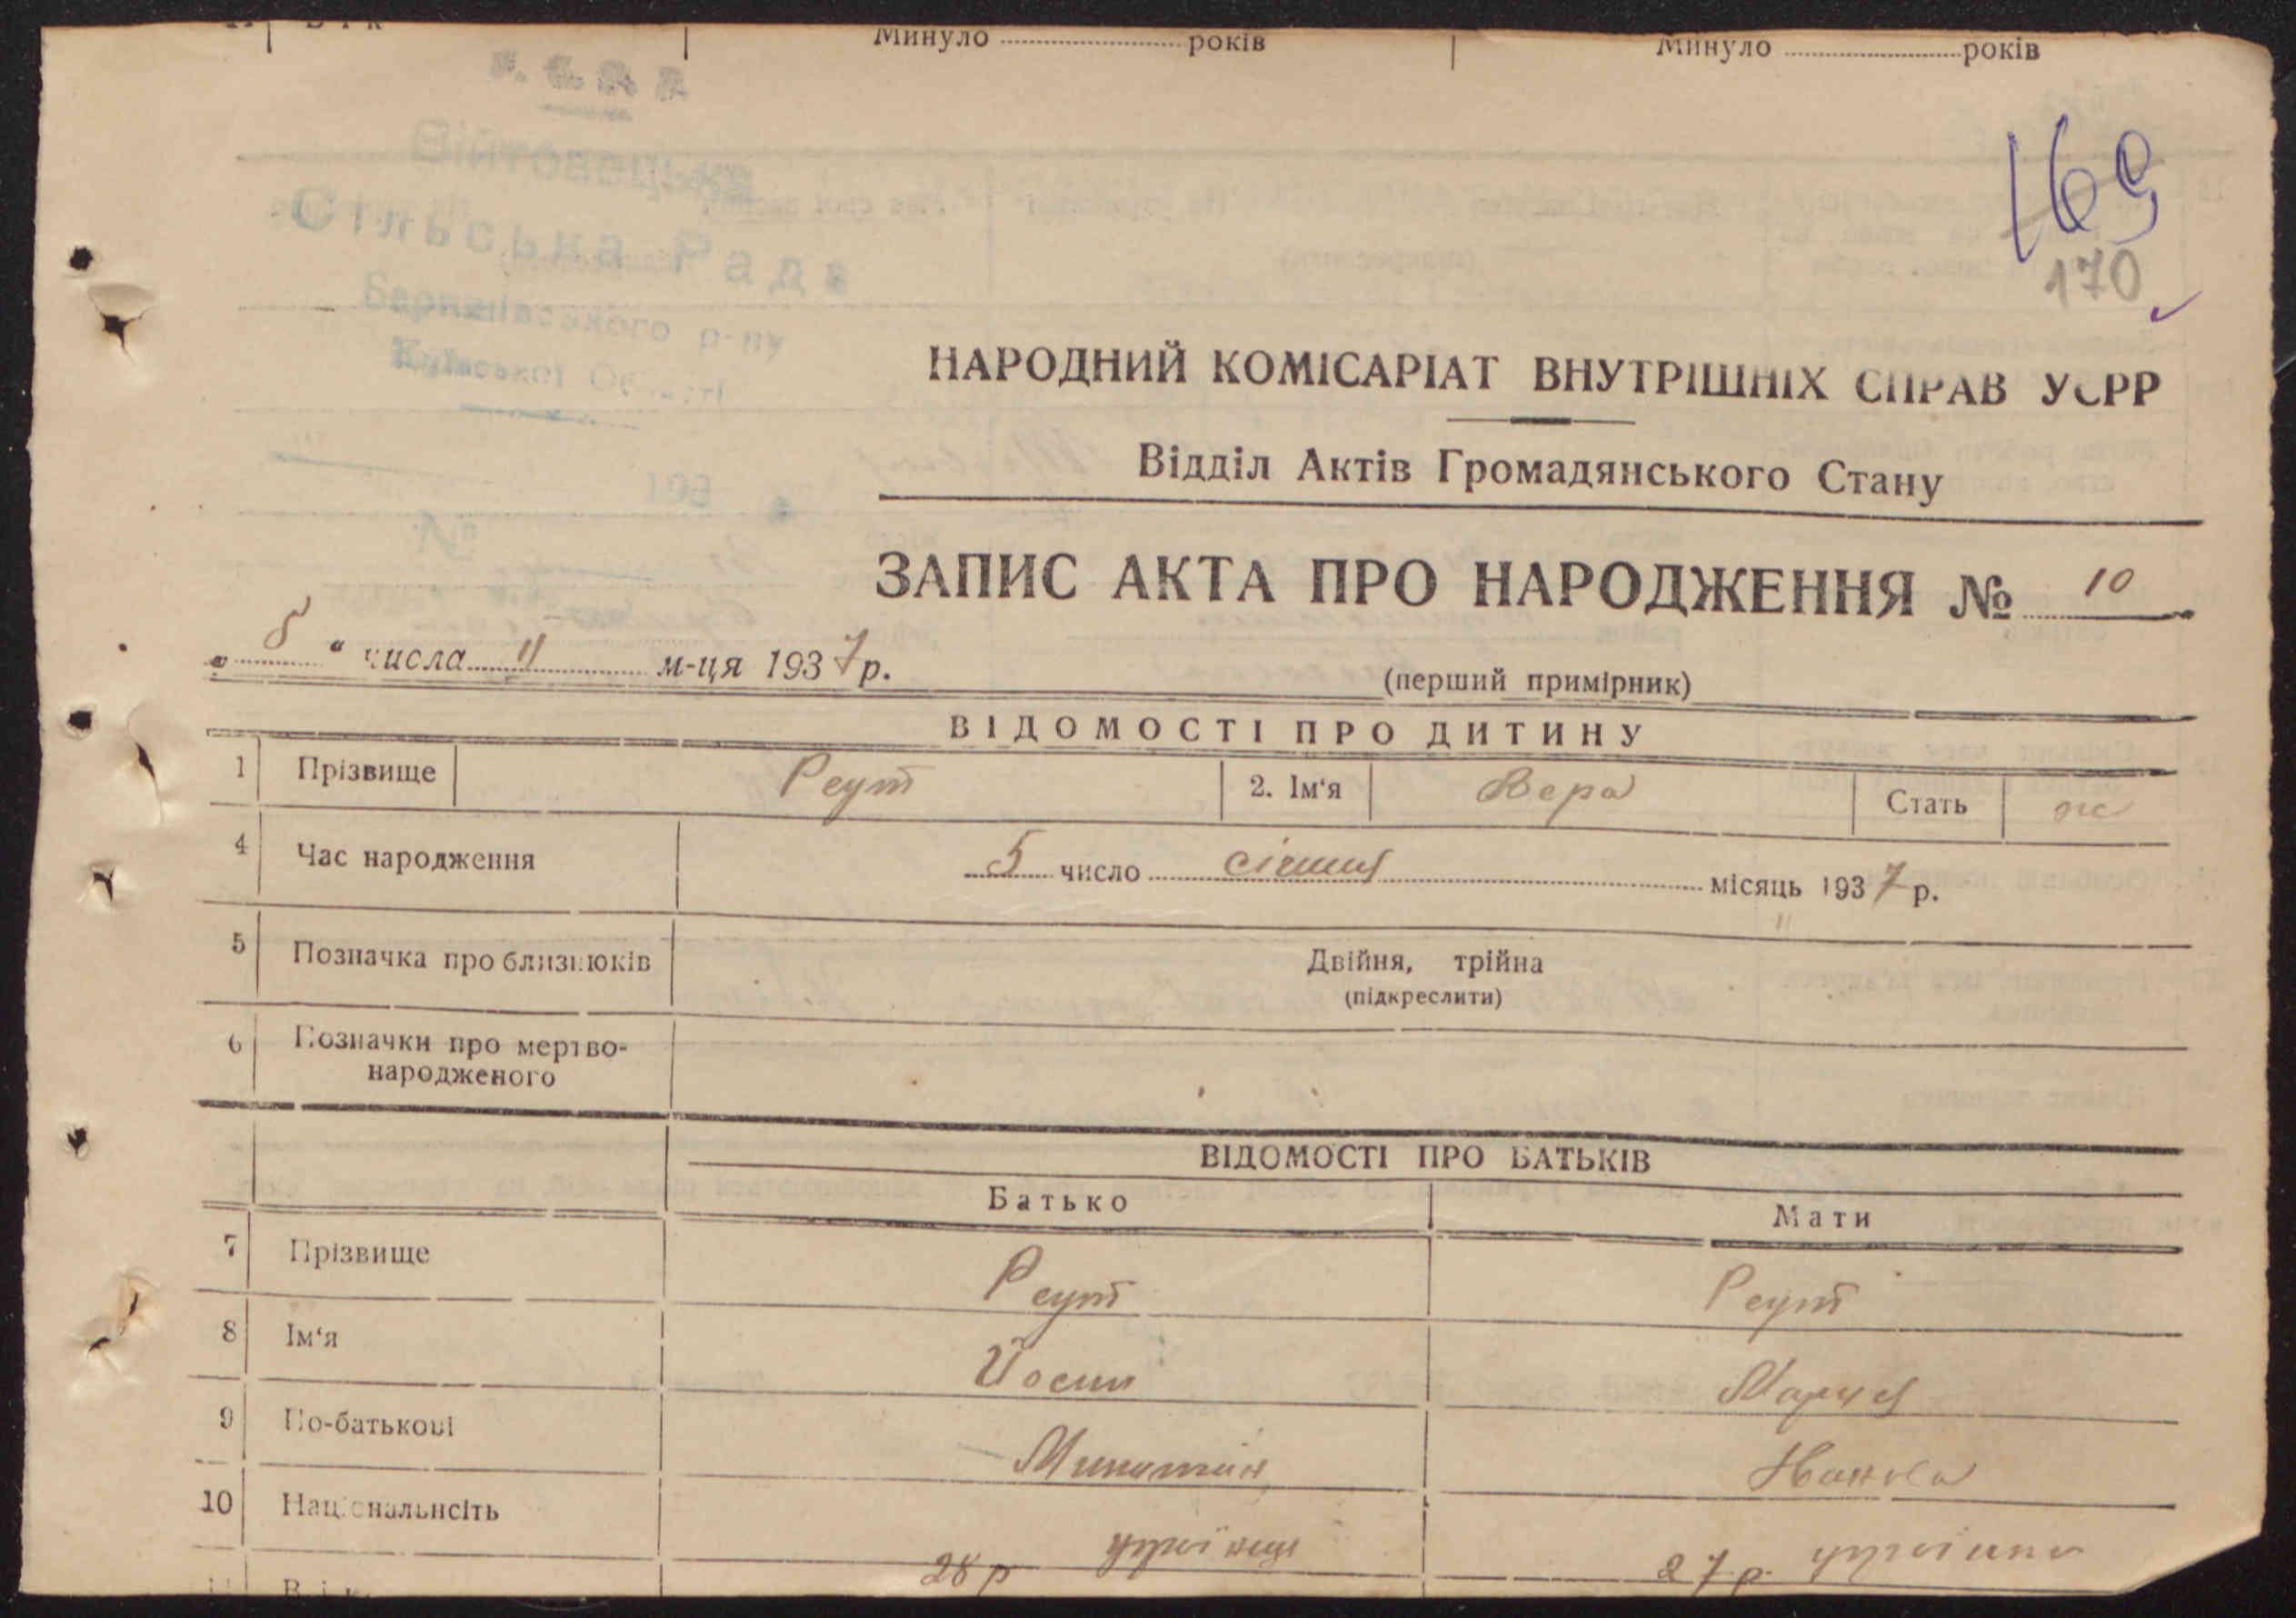 Минуло років Минуло років
Війтовецька
Сільська Рада
р-ну
Київської Області
193
№
169
170
НАРОДНИЙ КОМІСАРІАТ ВНУТРІШНІХ СПРАВ УСРР
Відділ Актів Громадянського Стану
ЗАПИС АКТА ПРО НАРОДЖЕННЯ № 10
„ 8 “ числа II м-ця 1937 р.
(перший примірник)
ВІДОМОСТІ ПРО ДИТИНУ
1 Прізвище Реут 2. Ім‘я Вера Стать ж
4 Час народження 5 число січня місяць 1937 р.
5 Позначка про близнюків Двійня, трійна
(підкреслити)
6 Позначки про мертво-
народженого
ВІДОМОСТІ ПРО БАТЬКІВ
Батько Мати
7 Прізвище Реут Реут
8 Ім‘я Йосип Маруся
9 По-батькові Ивановна
10 Національнсіть україниц українка
11 Вік 28 р 27 р.